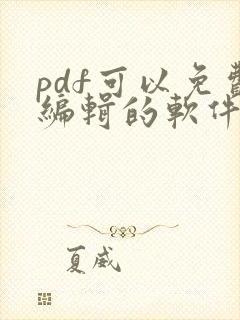 pdf可以免費
編輯的軟件
夏威